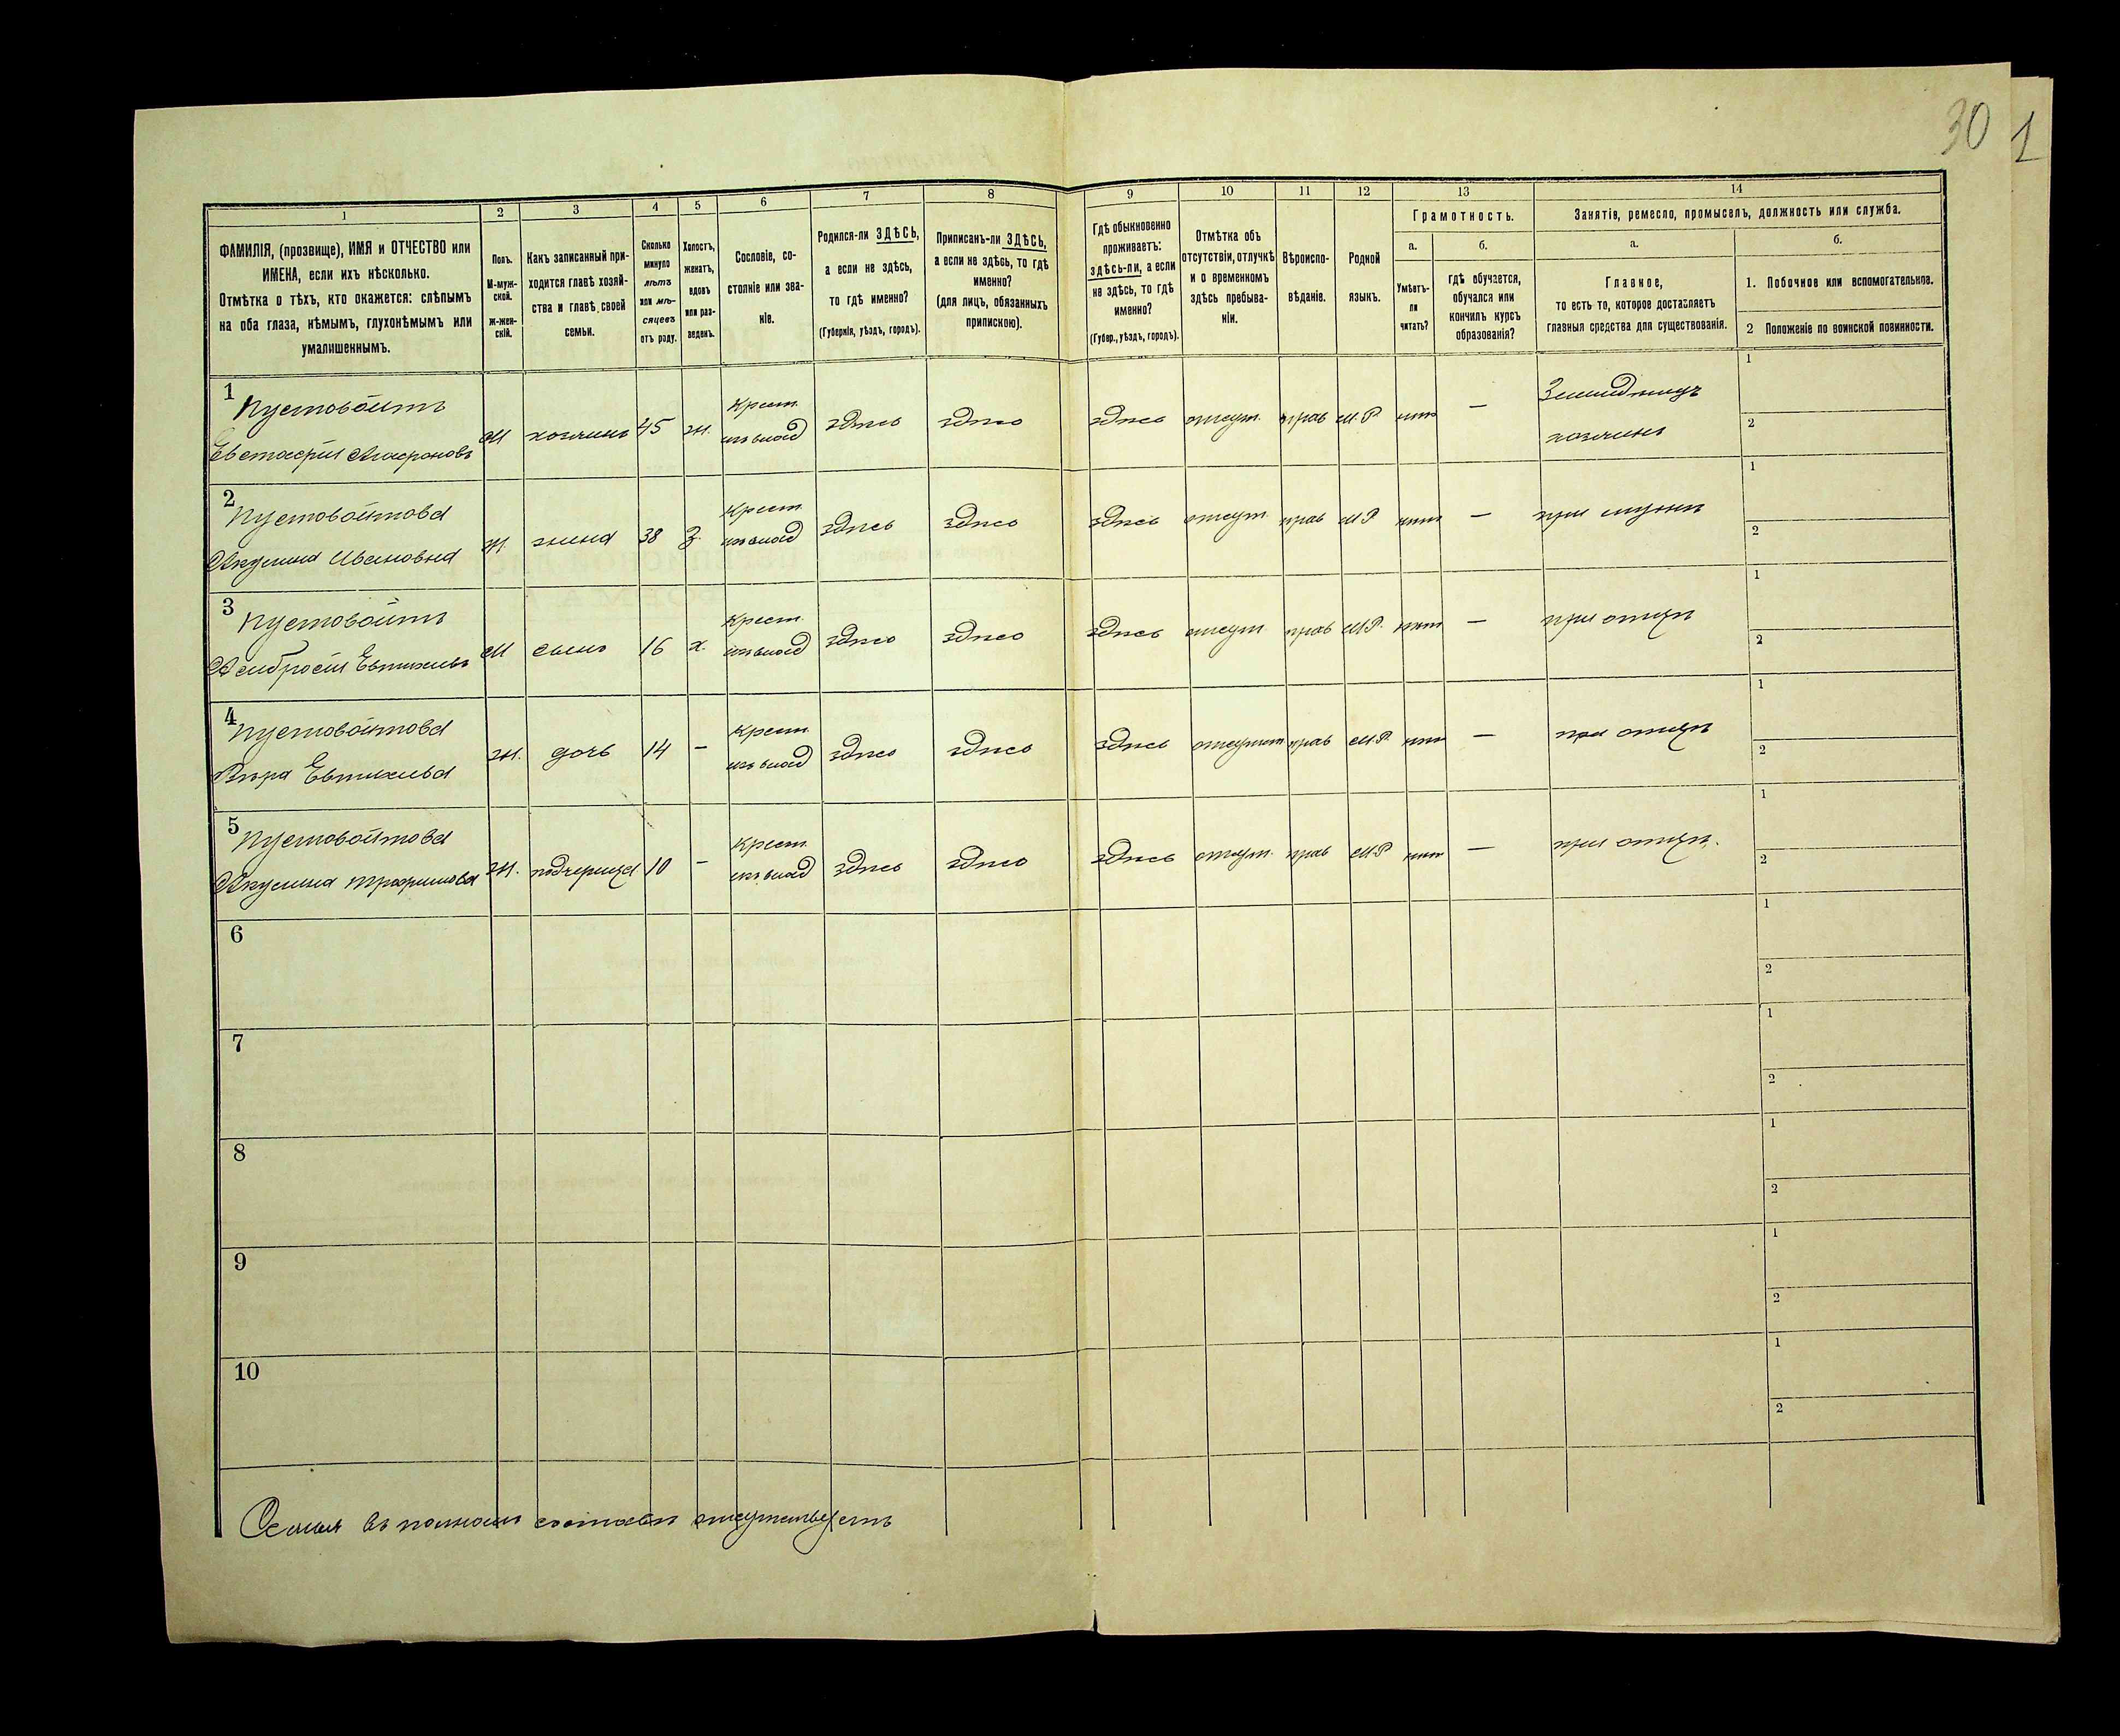 30 1
1 2 3 4 5 6 7 8 9 10 11 12 13 14
ФАМИЛІЯ, (прозвище), ИМЯ и ОТЧЕСТВО или
ИМЕНА, если ихъ нѣсколько.
Отмѣтка о тѣхъ, кто окажется: слѣпымъ
на оба глаза, нѣмымъ, глухонѣмымъ или
умалишеннымъ.
Полъ.
М-муж-
ской.
Ж-жен-
скій.
Какъ записанный при-
ходится главѣ хозяй-
ства и главѣ своей
семьи.
Сколько
минуло
лѣтъ
или мѣ-
сяцевъ
отъ роду.
Холостъ,
женатъ,
вдовъ
или раз-
веденъ.
Сословіе, со-
стояніе или зва-
ніе.
Родился-ли ЗДѢСЬ,
а если не здѣсь,
то гдѣ именно?
(Губернія, уѣздъ, городъ).
Приписанъ-ли ЗДѢСЬ,
а если не здѣсь, то гдѣ
именно?
(для лицъ, обязанныхъ
припискою).
Гдѣ обыкновенно
проживаетъ:
здѣсь-ли, а если
не здѣсь, то гдѣ
именно?
(Губер., уѣздъ, городъ).
Отмѣтка объ
отсутствіи, отлучкѣ
и о временномъ
здѣсь пребыва-
ніи.
Вѣроиспо-
вѣданіе.
Родной
языкъ.
Грамотность.
а.
Умѣетъ-
ли
читать?
б.
гдѣ обучается,
обучался или
кончилъ курсъ
образованія?
Занятіе, ремесло, промыселъ, должность или служба.
а.
Главное,
то есть то, которое доставляетъ
главныя средства для существованія.
б.
1. Побочное или вспомогательное.
2 Положеніе по воинской повинности.
1 Пустовойтъ Крест. 1
М хозяинъ 45 ж. здѣсь здѣсь здѣсь отсут. прав М.Р. нѣтъ —
хозяинъ 2
2 Пустовойтова Крест. 1
Акулина Ивановна ж. жена 38 з. здѣсь здѣсь здѣсь отсут. прав М.Р. нѣтъ — при мужѣ
2
3 Пустовойтъ Крест. 1
М сынъ 16 х. здѣсь здѣсь здѣсь отсут. прав М.Р. нѣтъ — при отцѣ
2
4 Пустовойтова Крест. 1
Вѣра ж. дочь 14 – здѣсь здѣсь здѣсь отсут. прав М.Р. нѣтъ — при отцѣ
2
5 Пустовойтова Крест. 1
Акулина Трофимова ж. падчерица 10 – здѣсь здѣсь здѣсь отсут. прав М.Р. нѣтъ — при отцѣ.
2
6 1
2
7 1
2
8 1
2
9 1
2
10 1
2
Семья въ полномъ составѣ отсутствуетъ